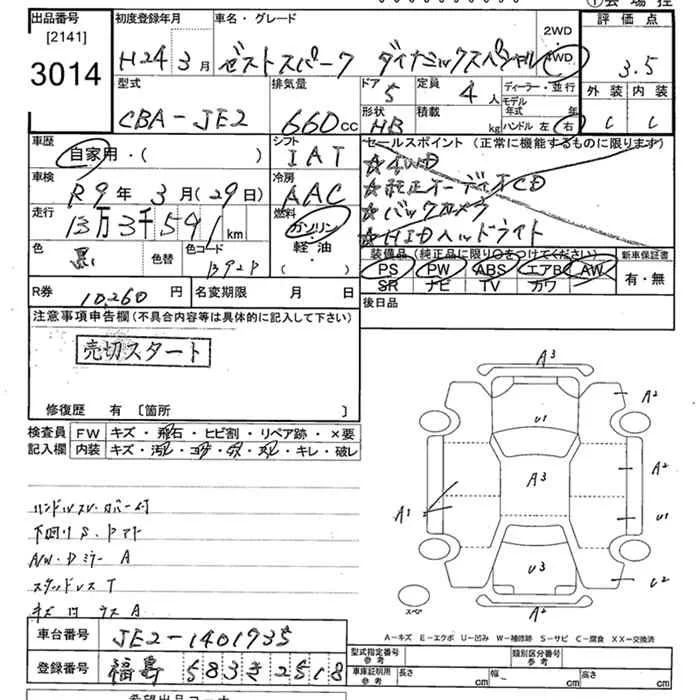 出品番号
[2141]
3014
初度登録年月
H24年3月
車名・グレード
ゼストスパーク ダイナミックスペシャル
2WD
4WD
評価点
3.5
外装 内装
C C
型式
CBA-JE2
排気量
660cc
ドア
5
形状
HB
定員
4人
積載
kg
ディーラー・並行
モデル年式 年
ハンドル 左 右
車歴
自家用・( )
シフト
IAT
セールスポイント (正常に機能するものに限ります)
☆4WD
☆純正オーディオCD
☆バックカメラ
☆HIDヘッドライト
車検
R9年3月(29日)
冷房
AAC
走行
13万3千591km
燃料
ガソリン
軽油
( )
色
黒
色替
色コード
B92P
装備品 (純正品に限り○をつけてください)
PS PW ABS エアB AW
SR ナビ TV カワ
新車保証書
有・無
R券
10260円
名変期限 月 日
後日品
注意事項申告欄(不具合内容等は具体的に記入して下さい)
売切スタート
修復歴 有 [箇所 ]
検査員記入欄
FW キズ・飛石・ヒビ割・リペア跡・×要
内装 キズ・汚レ・コゲ・・キレ・破レ
下回りS.
AW・Dミラー A
スタッドレス T
A
A3
A2
U1
A2
A3
A1
U1
U3
U2
A2
スペア
A-キズ E-エクボ U-凹み W-補修跡 S-サビ C-腐食 XX-交換済
車台番号
JE2-1401935
登録番号
福島 583き2518
型式指定番号
参考
類別区分番号
参考
車庫証明用
参考
長さ cm
幅 cm
高さ cm
希望出品コーナ